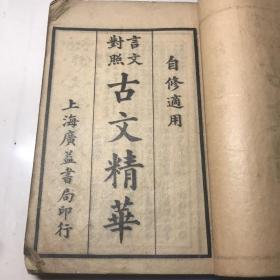 自修適用
言文
對照
古文精華
上海廣益書局印行